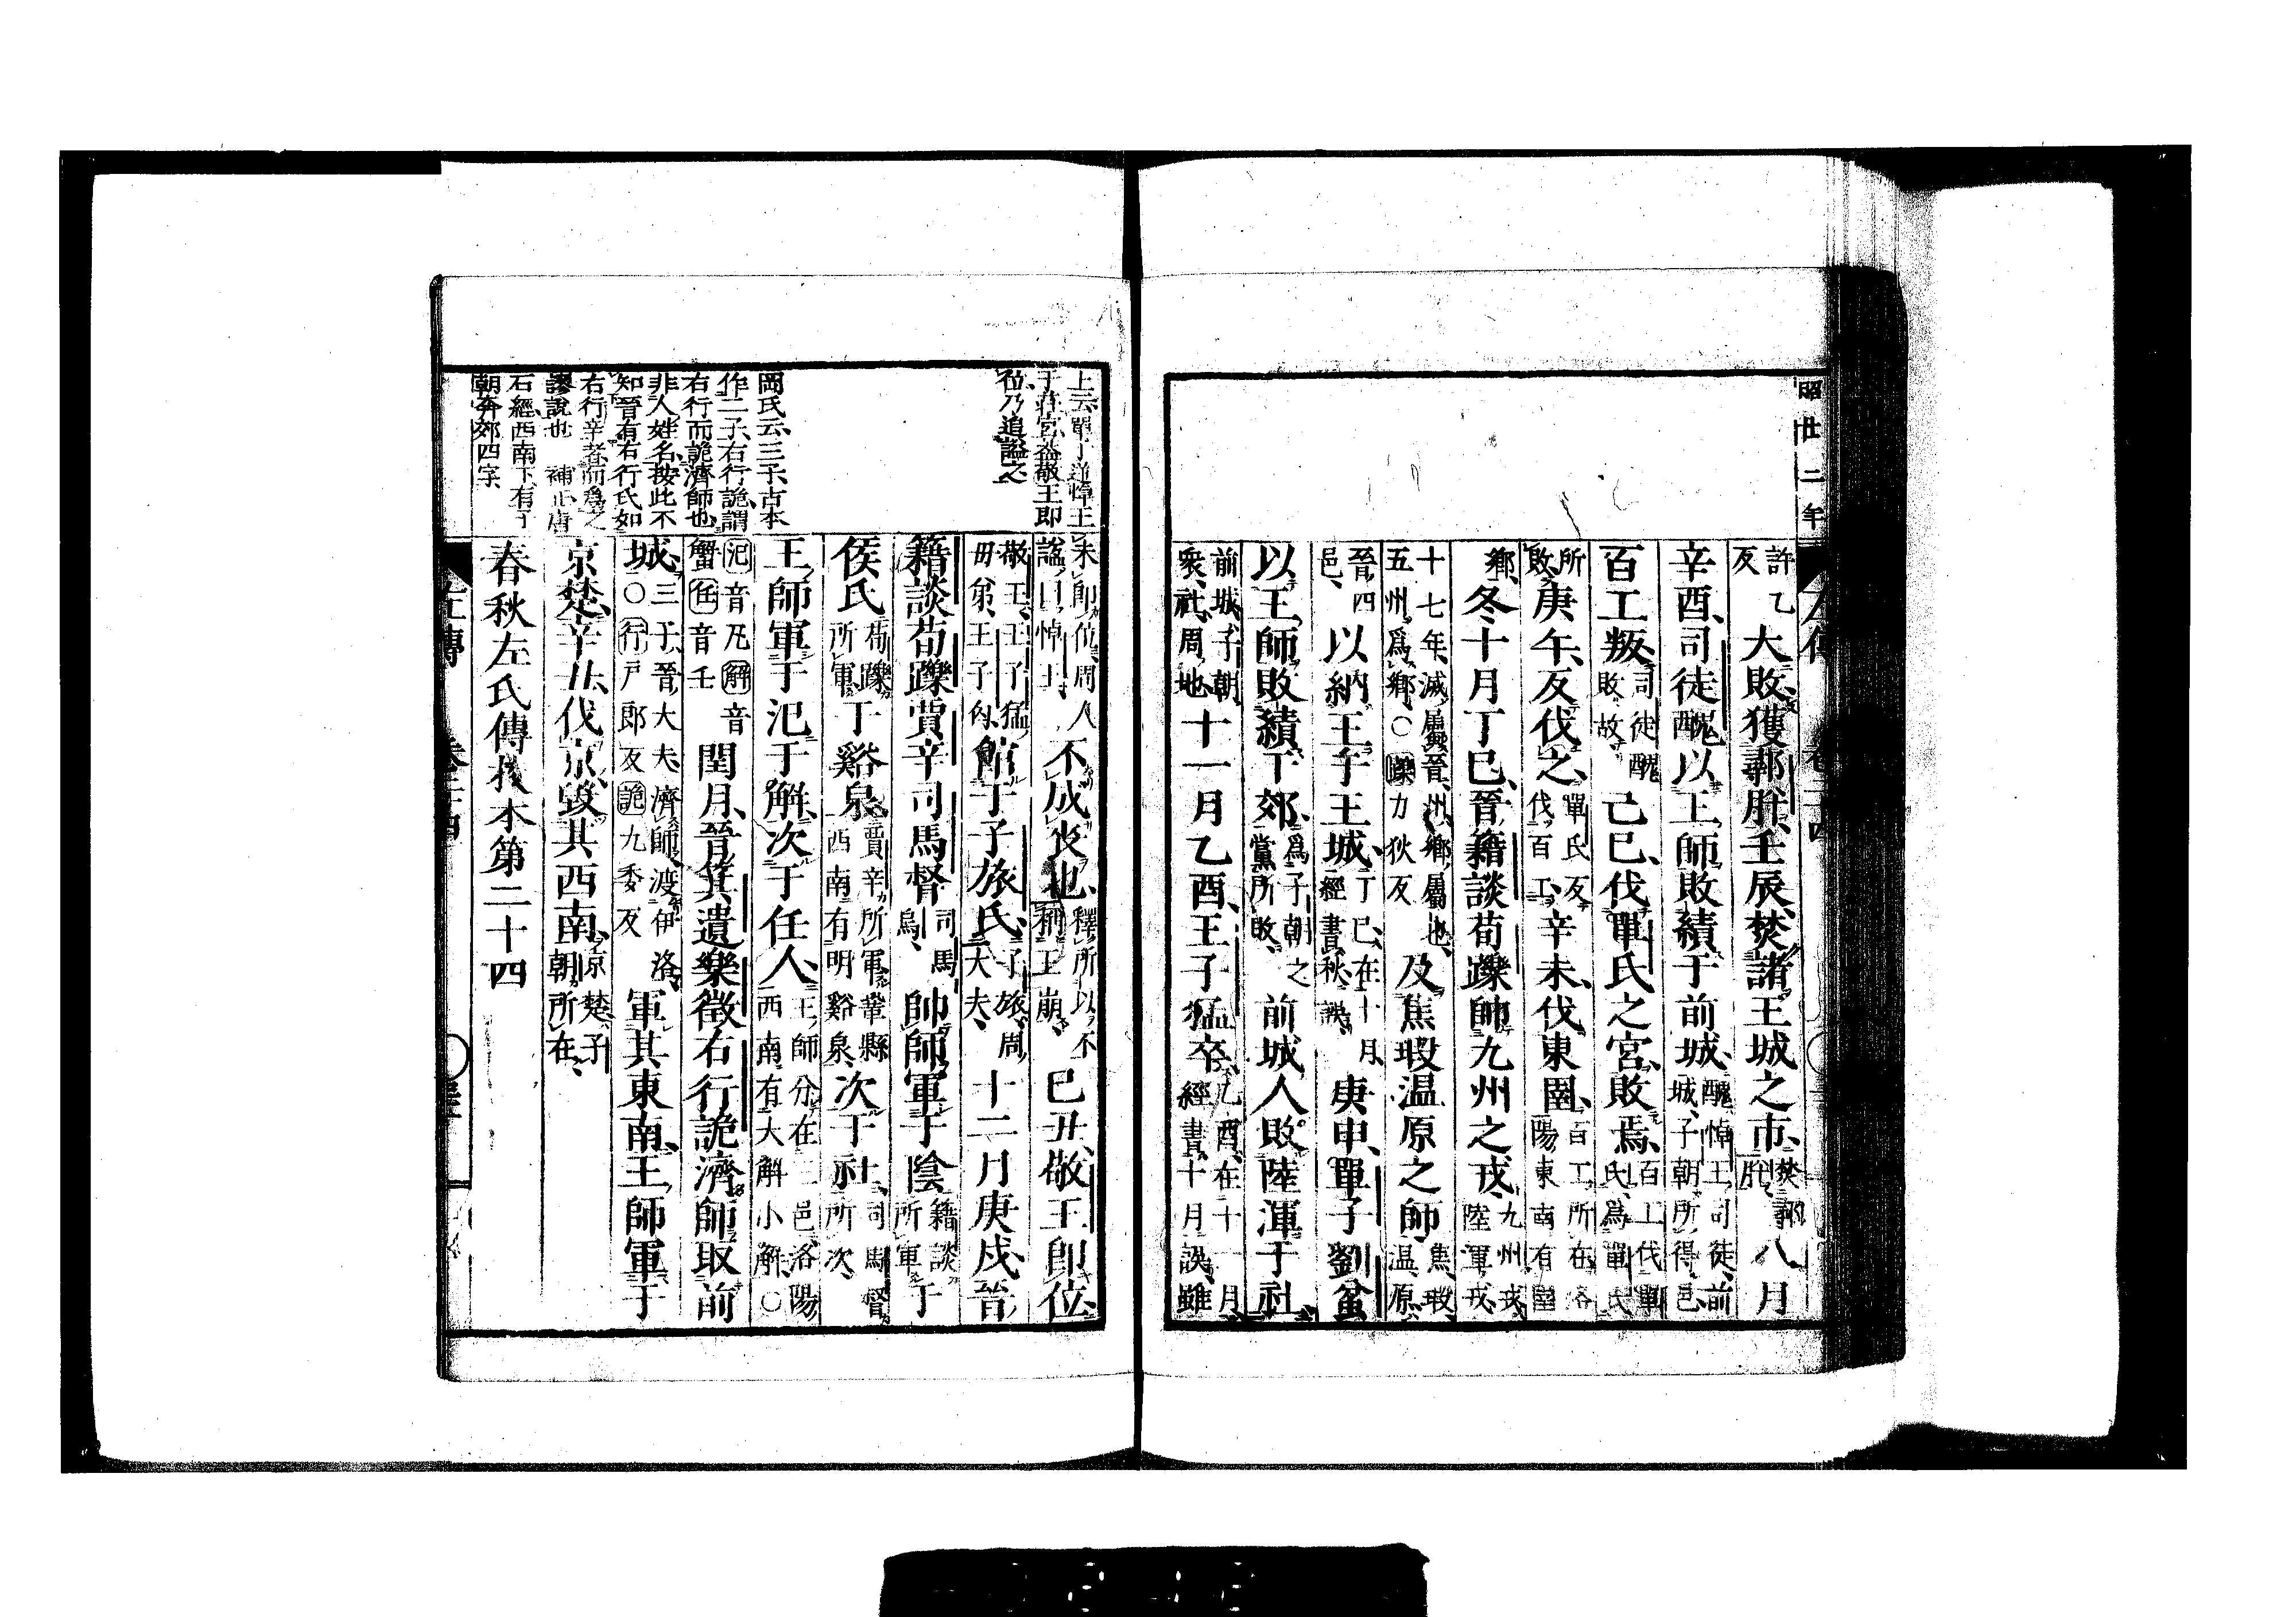 昭廿二年
許乙反大敗獲鄩肸壬辰焚諸王城之市焚鄩肸八月
辛酉司徒醜以王師敗績于前城醜悼王司徒前城子朝所得邑
百工叛司徒醜敗故己巳伐單氏之宮敗焉百工伐單氏爲單氏
所敗庚午反伐之單氏反伐百工辛未伐東圉百工所在洛陽東南有圉
鄉冬十月丁巳晉籍談荀躒帥九州之戎九州戎陸渾戎
十七年滅屬晉州鄉屬也五州爲鄉○躒力狄反及焦瑕温原之師焦瑕温原
晉四邑以納王于王城丁巳在十月經書秋誤庚申單子劉蚠
以王師敗績于郊爲子朝之黨所敗前城人敗陸渾于社
前城子朝衆社周地十一月乙酉王子猛卒乙酉在十一月經書十月誤雖
上云單子逆悼王
于莊宮葢敬王即
位乃追謚之
未即位周人謚曰悼王不成喪也釋所以不稱王崩己丑敬王即位
敬王王子猛母弟王子匄館于子旅氏子旅周大夫十二月庚戌晉
籍談荀躒賈辛司馬督司馬烏帥師軍于陰籍談所軍于
侯氏荀躒所軍于谿泉賈辛所軍鞏縣西南有明谿泉次于社司馬督所次
王師軍于氾于解次于任人王師分在三邑洛陽西南有大解小解○
氾音凡解音蟹任音壬閏月晉箕遺樂徵右行詭濟師取前
城三子晉大夫濟師渡伊洛○行戸郎反詭九委反軍其東南王師軍于
京楚辛丑伐京毀其西南京楚子朝所在
春秋左氏傳挍本第二十四
岡氏云三子古本
作二子右行詭謂
右行而詭濟師也
非人姓名按此不
知晉有右行氏如
右行辛者而爲之
謬說也 補正唐
石經西南下有子
朝奔郊四字